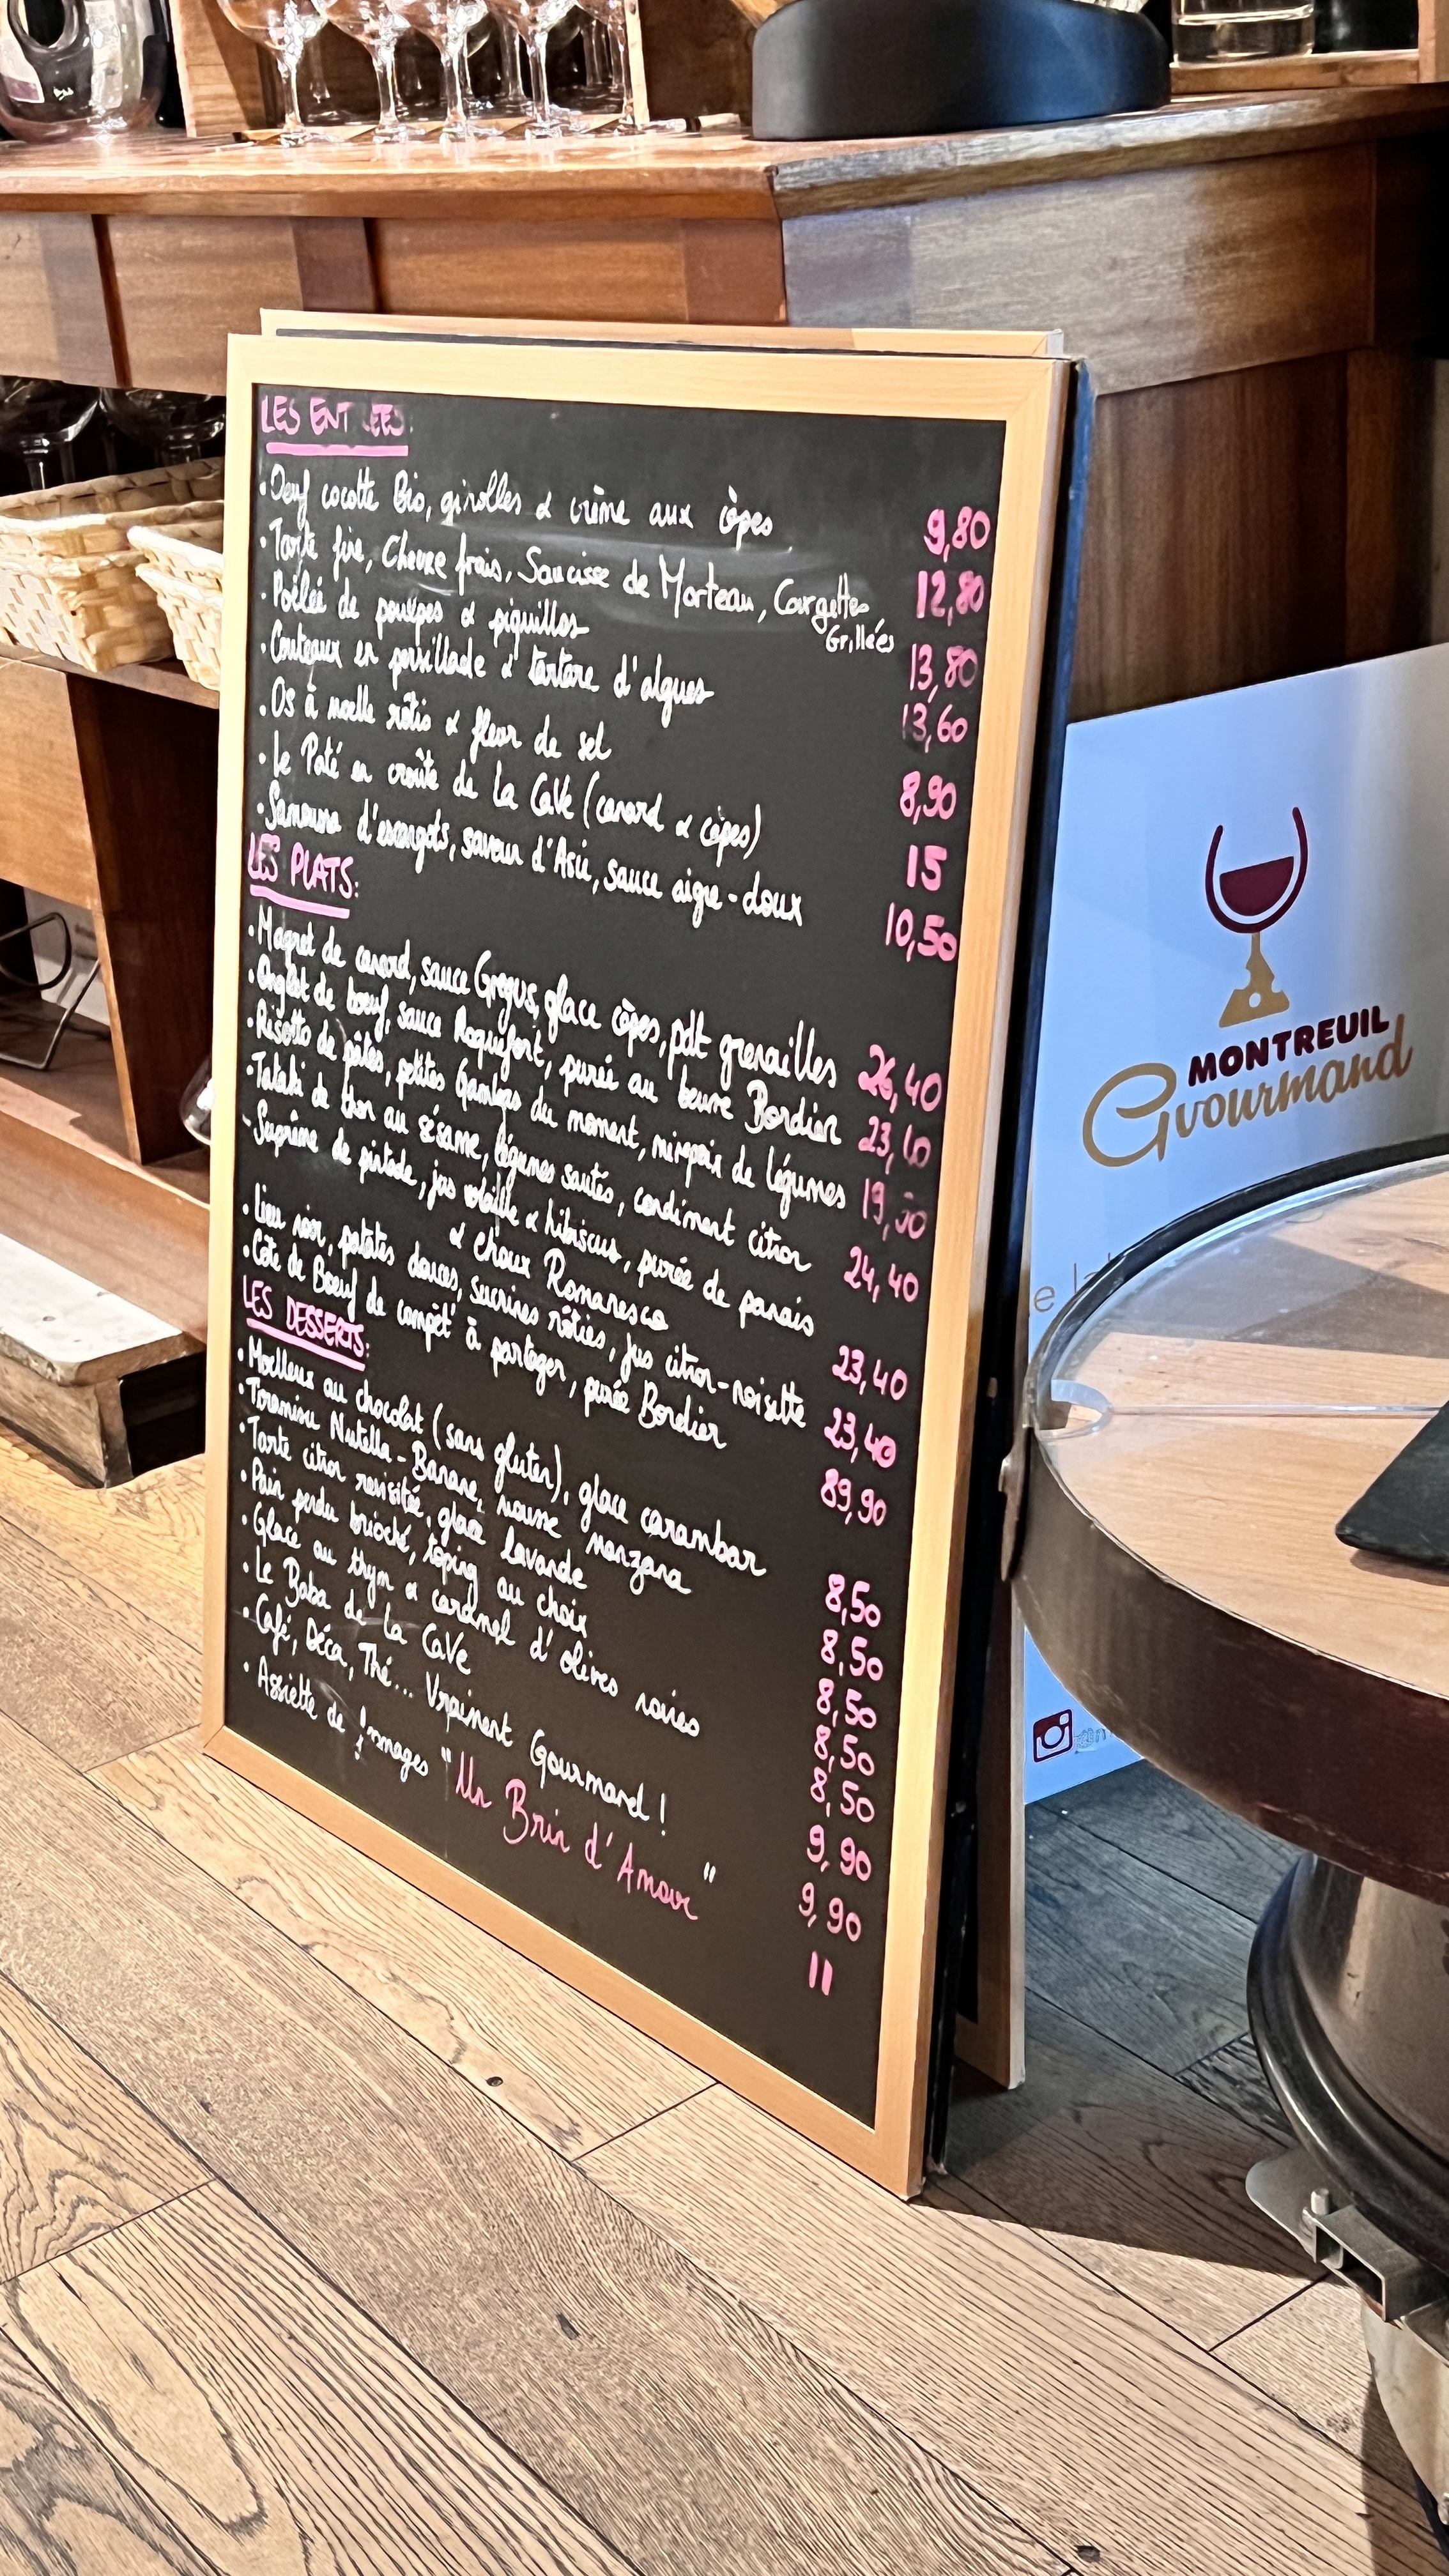 LES ENT EES:
• Oeuf cocotte Bio, girolles & crème aux cèpes 9,80
• Tarte fine, Chèvre frais, Saucisse de Morteau, Courgettes 12,80
Grillées
• Poêlée de poulpes & piquillos 13,80
• Couteaux en persillade & tartare d'algues 13,60
• Os à moelle rôtis & fleur de sel 8,90
• Le Pâté en croûte de La CaVe (canard & cèpes) 15
• Samoussa d'escargots, saveur d'Asie, sauce aigre-doux 10,50
LES PLATS:
• Magret de canard, sauce glace cèpes, pdt grenailles 26,40
• Onglet de boeuf, sauce Roquefort, purée au beurre Bordier 23,
• Risotto de pâtes, petites Gambas du moment, mirepoix de légumes 19,
• Tataki de thon au sésame, légumes sautés, condiment citron 24,40
- Suprême de pintade, jus volaille & hibiscus, purée de panais
& choux Romanesco 23,40
• Lieu noir, patates douces, sucrines rôties, jus citron-noisette 23,40
• Côte de Boeuf de compèt' à partager, purée Bordier 89,90
LES DESSERTS:
• Moelleux au chocolat (sans gluten), glace carambar 8,50
• Tiramisu Nutella-Banane, mousse manzana 8,50
• Tarte citron revisitée, glace lavande 8,50
• Pain perdu brioché, toping au choix 8,50
• Glace au thym & caramel d'olives noires 8,50
• Le Baba de La CaVe 9,90
• Café, Déca, Thé... Vraiment Gourmand ! 9,90
• Assiette de fromages "Un Brin d'Amour" 11
MONTREUIL
Gourmand